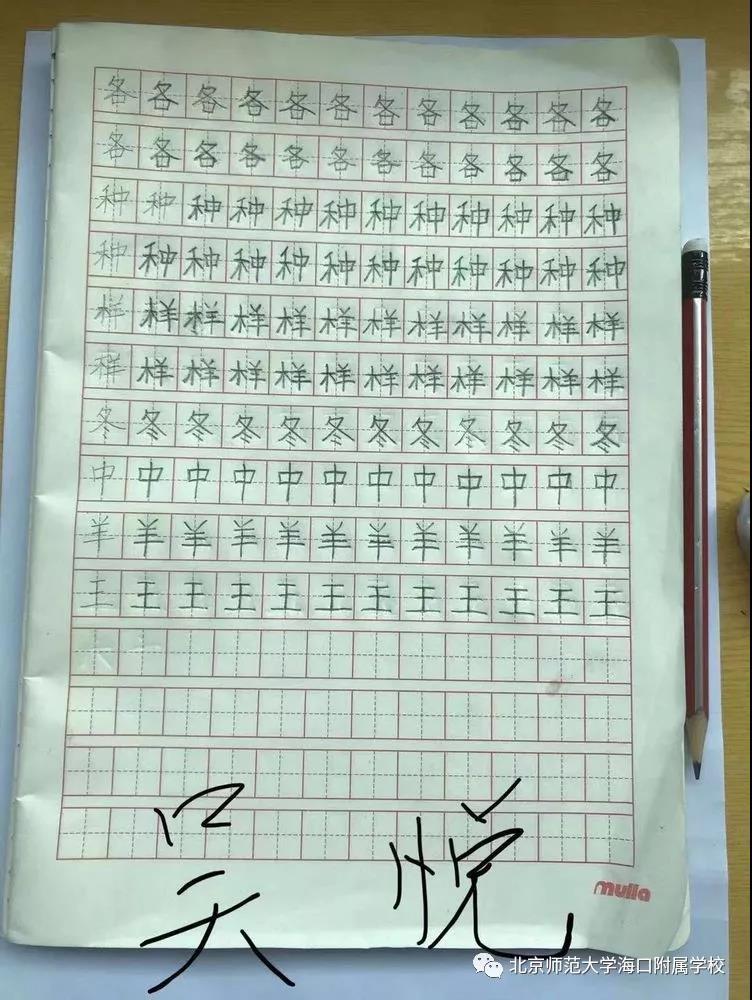 各各各各各各各各各各各各
各各各各各各各各各各各各
种种种种种种种种种种种种
种种种种种种种种种种种种
样样样样样样样样样样样样
样样样样样样样样样样样样
冬冬冬冬冬冬冬冬冬冬冬冬
中中中中中中中中中中中中
羊羊羊羊羊羊羊羊羊羊羊羊
王王王王王王王王王王王王
吴 悦
mulla
北京师范大学海口附属学校